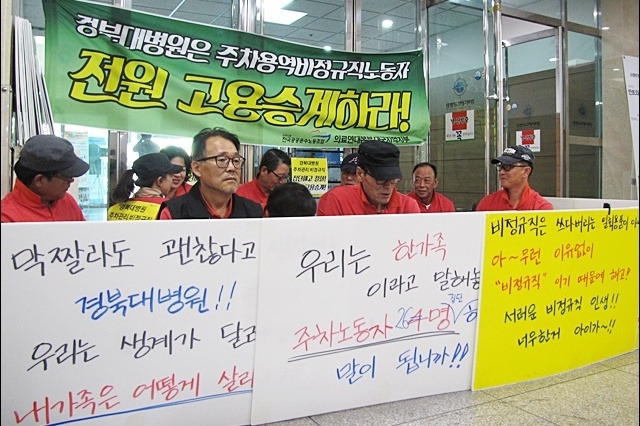 경북대병원은 주차용역비정규직노동자
전원 고용승계하라!
전국공공운수노동조합
경북대병원
주차관리 비정규
경북대병원
주차관리 비정규직
막짤라도 괜찮다고
경북대병원!!
우리는 생계가 달
내가족은 어떻게 살
우리는 한가족
이라고 말해놓
주차노동자 26명 집단
말이 됩니까!!
비정규직은 쓰다버리는
아~무런 이유없이
"비정규직"이기 때문에 해고!
서러운 비정규직 인생!!
너무한거 아이가~!!